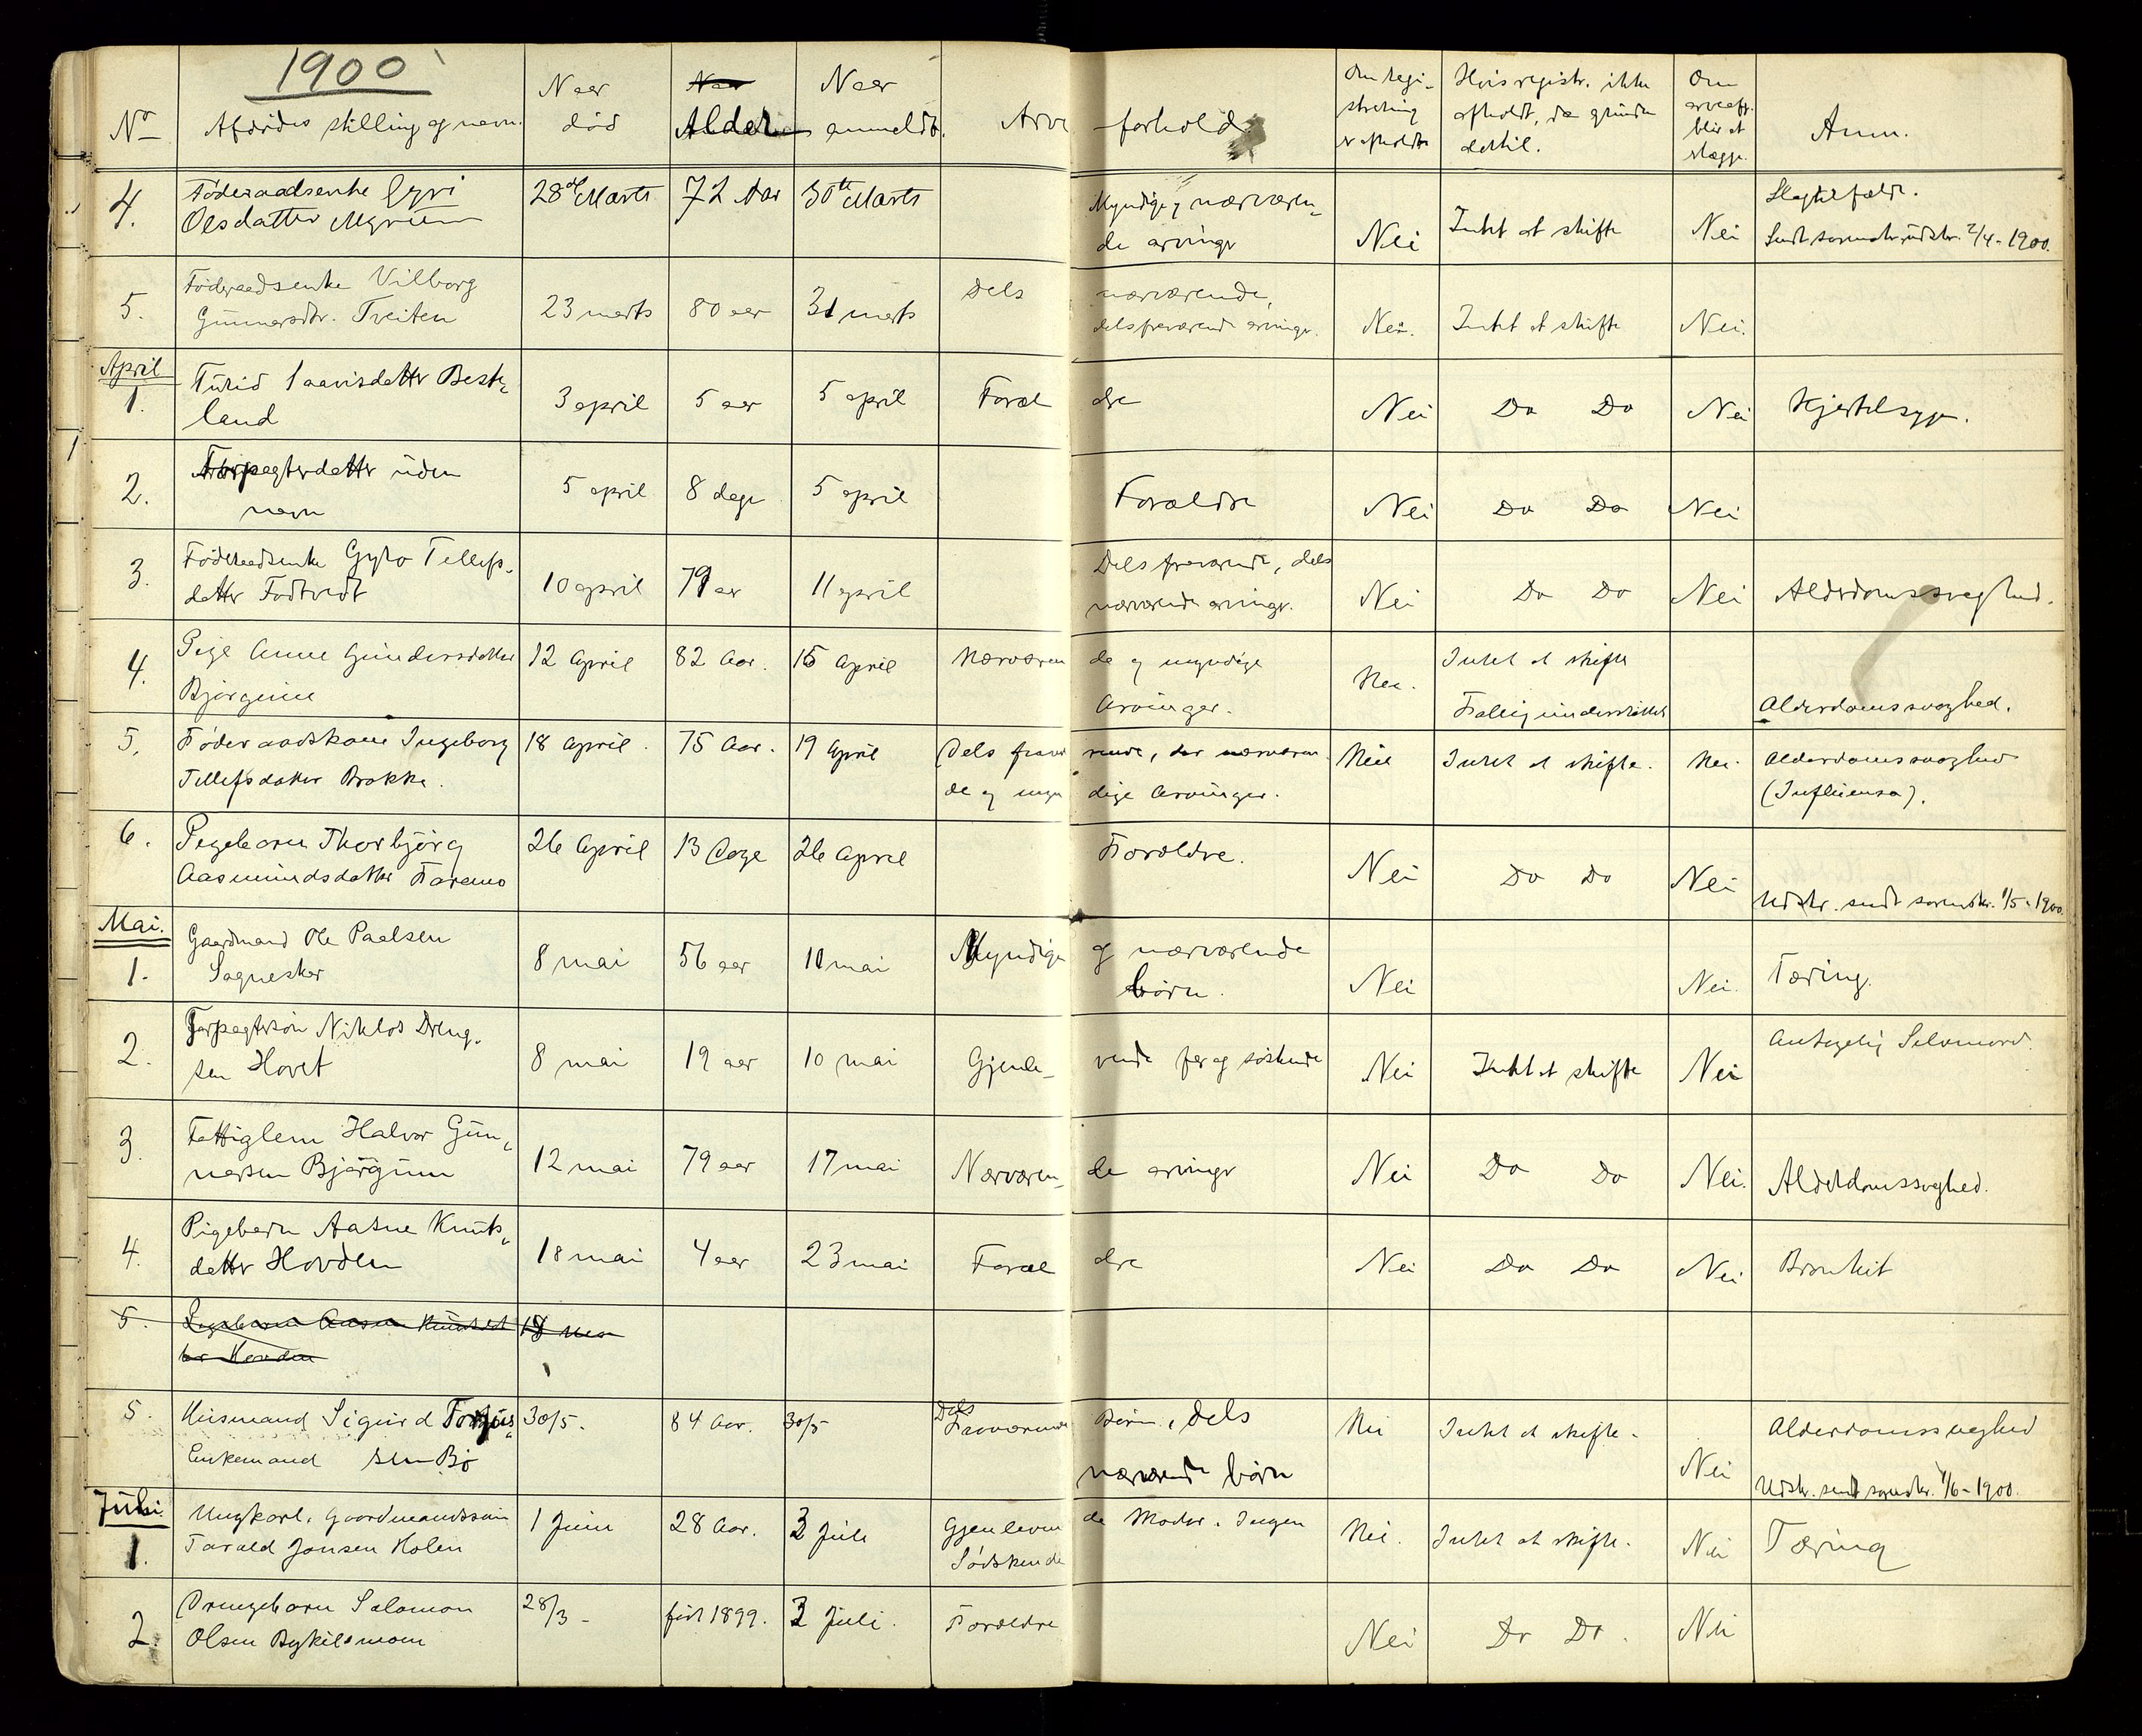 1900
No Afdødes stilling og navn. Naar død Alder Naar anmeldt. Arveforhold. Om regi-strering er afholdt Hvis registr. ikke afholdt, da grunden dertil. Om arveafg. blir at vlægge. Anm.
4. Føderaadsenke Gyri 28de Marts 72 Aar 30te Marts Myndige, nærværen- Slagtilfælde.
Olsdatter Myrum de arvinger Nei Intet at skifte Nei Sendt sorenskr. udskr. 2/4-1900.
5. Føderaadsenke Vilborg 23 marts 80 aar 31 marts Dels nærværende,
Gunnarsdtr. Treiten dels fraværende arvinger. Nei. Intet at skifte Nei.
April
1. Turid Taavisdatter Beste-
land 3 april 5 aar 5 april Forældre Nei Do Do Nei Kjertelsyge.
2. Forpagterdatter uden
navn 5 april 8 dage 5 april Forældre Nei Do Do Nei
3. Føderaadsenke Gyro Tellefs- Dels fraværende, dels
datter Fodtvedt 10 april 79 aar 11 april nærværende arvinger. Nei Do Do Nei Alderdomssvaghed.
4. Pige Anne Gundersdatter 12 April 82 Aar. 15 April Nærværende og myndige Intet at skifte
Bjørgum Arvinger. Nei. Fattigunderstøttet Alderdomssvaghed.
5. Føderaadskone Ingeborg 18 April. 75 Aar. 19 April Dels fraværende, dels nærværen Nei Intet at skifte. Nei. Alderdomssvaghed
Tellefsdatter Brokke. de og myndige Arvinger. (Influensa).
6. Pigebarn Thorbjørg 26 April 13 Dage 26 April Forældre.
Aasmundsdatter Faremo Nei Do Do Nei Udskr. sendt sorenskr. 1/5-1900.
Mai.
1. Gaardmand Ole Paalsen Myndige og nærværende
Sagnesker 8 mai 56 aar 11 mai børn. Nei Nei. Tæring.
2. Forpagtersøn Niklos Dreng- Antagelig Selvmord.
sen Hovet 8 mai 19 aar 10 mai Gjenle-vende far og søskende Nei Intet at skifte Nei
3. Fattiglem Halvor Gun-
narsen Bjørgum 12 mai 79 aar 17 mai Nærværen-de arvinger Nei Do Do Nei. Alderdomssvaghed.
4. Pigebarn Aasne Knuts-
datter Hovden 18 mai 4 aar 23 mai Forældre Nei Do Do Nei Bronkit
5. Pigebarn Aasne Knutsdat 18 Mai
ter Hovden
5. Husmand Sigurd Torjus- 30/5. 84 Aar. 30/5 Dels Fraværende Børn, dels Nei Intet at skifte. Alderdomssvaghed
Enkemand sen Bø nærværende børn Nei Udskr. sendt sorenskr. 1/6-1900.
Juli.
1. Ungkarl, Gaardmandssøn 1 Juni 28 Aar. 2 Juli Gjenlevende Moder. Ingen Nei. Intet at skifte. Nei Tæring
Tarald Jonsen Holen Sødskende
2. Drengebarn Salomon 28/3- født 1899. 2 Juli. Forældre
Olsen Bykilsmoen Nei Do Do. Nei